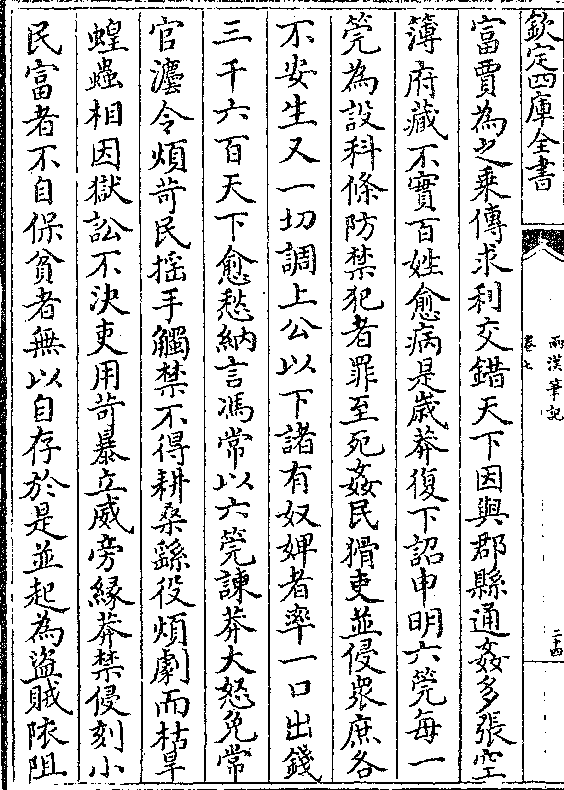 欽定四庫全書
兩漢筆記
卷七
二十四
富賈為之乘傳求利交錯天下因與郡縣通姦多張空
簿府藏不實百姓愈病是歲莽復下詔申明六筦每一
筦為設科條防禁犯者罪至死姦民猾吏並侵衆庶各
不安生又一切調上公以下諸有奴婢者率一口出錢
三千六百天下愈愁納言馮常以六筦諫莽大怒免常
官灋令煩苛民摇手觸禁不得耕桑繇役煩劇而枯旱
蝗蟲相因獄訟不決吏用苛暴立威旁緣莽禁侵刻小
民富者不自保貧者無以自存於是並起為盜賊依阻